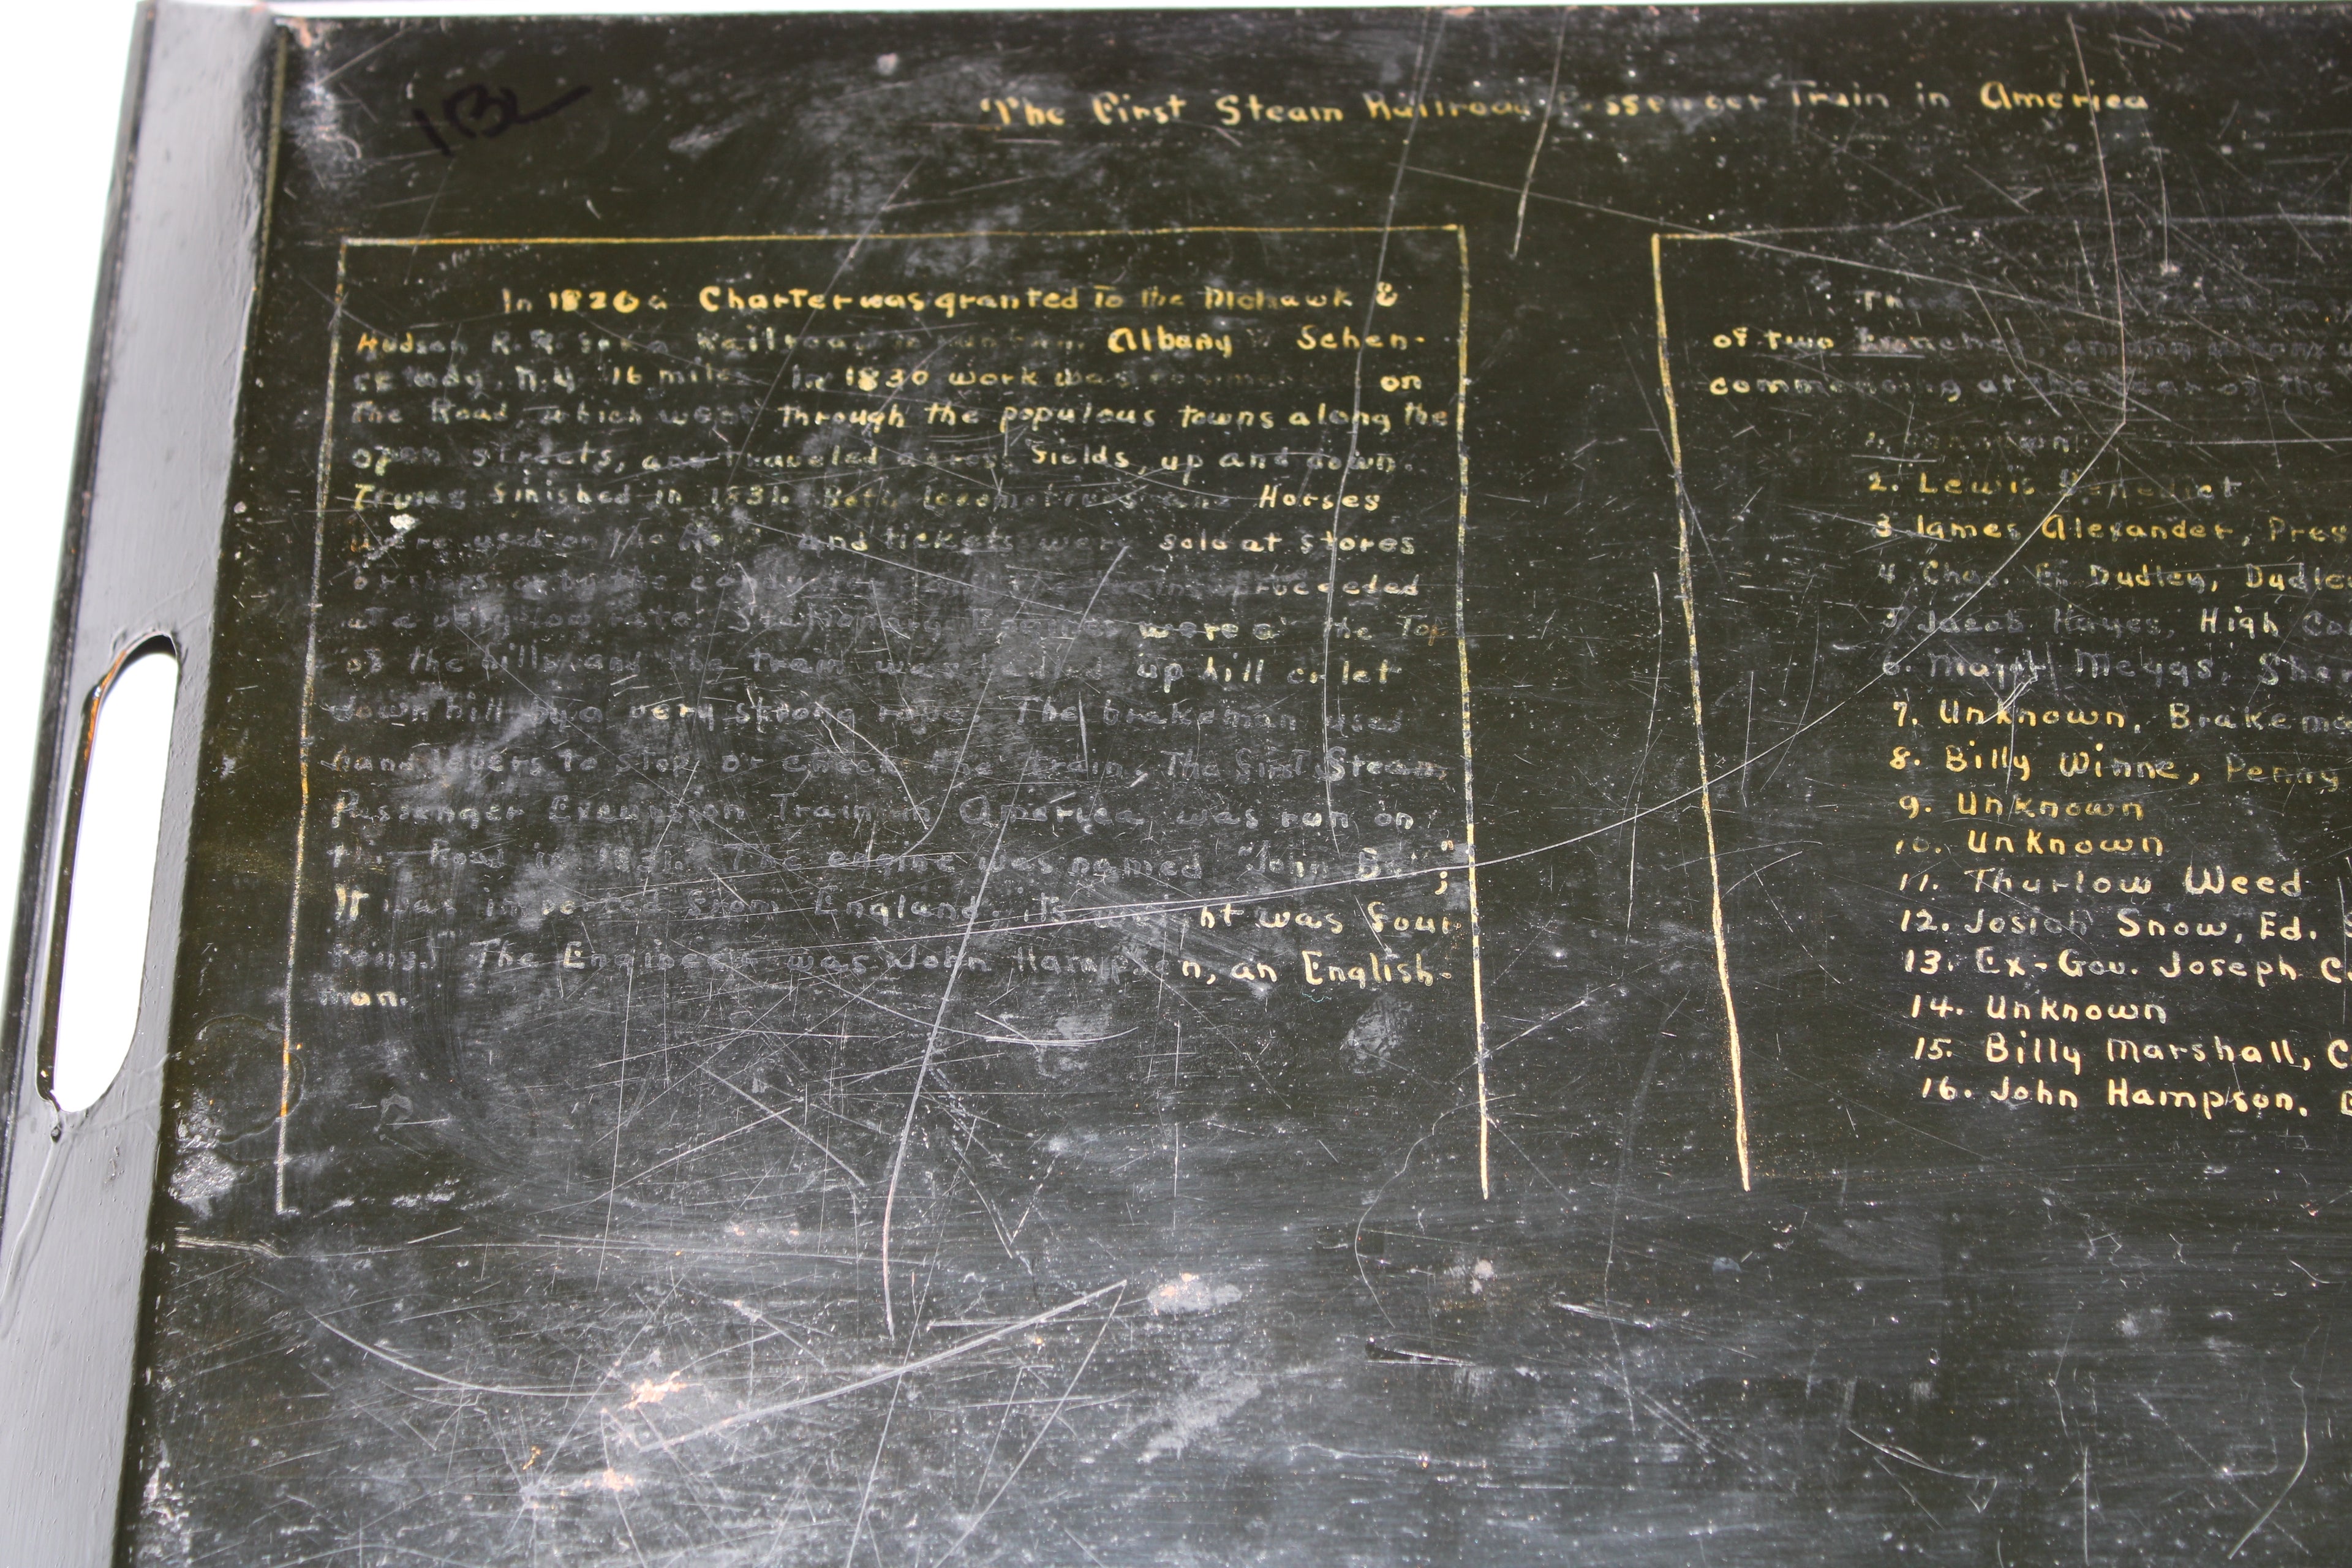 The First Steam Railroad Passenger Train in America
In 1826 a Charter was granted To the Mohawk &
Hudson R. R. for a Railroad between Albany Schen-
ectady, N.Y. 16 miles In 1830 work was commenced on
the Road, which went Through the populous towns along the
open streets, and traveled across fields, up and down.
It was finished in 1831. Both locomotives and Horses
were used on the Road and tickets were sold at stores
proceeded
at a very low rate. Stationary were at the Top
of the hills and the train was up hill or let
down hill by a very strong rope. The brakeman used
hand levers to stop or check the train. The first Steam
Passenger Excursion Train in America was run on
this Road in 1831. The engine was named "John Bull";
It was imported from England; its weight was four
tons. The Engineer was John Hampson, an English-
man.
The
of two
commencing at the rear of the
1. Unknown
2. Lewis Benedict
3 James Alexander, Pres
4. Chas. E. Dudley, Dudle
5 Jacob Hayes, High Co
6. Major Meigs, She
7. Unknown, Brakema
8. Billy Winne, Penny
9. Unknown
10. Unknown
11. Thurlow Weed
12. Josiah Snow, Ed.
13. Ex-Gov. Joseph C
14. Unknown
15. Billy Marshall, C
16. John Hampson, E